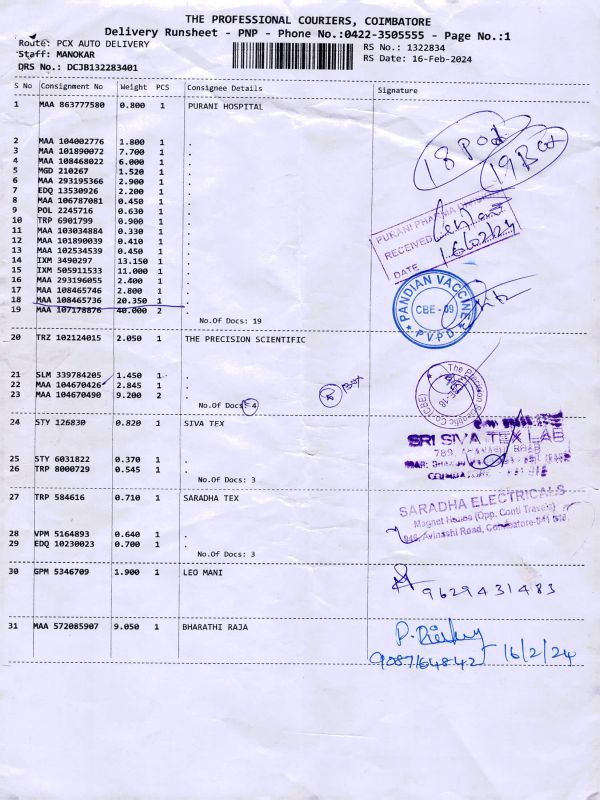 THE PROFESSIONAL COURIERS, COIMBATORE
Delivery Runsheet - PNP - Phone No.:0422-3505555 - Page No.:1
Route: PCX AUTO DELIVERY
RS No.: 1322834
Staff: MANOKAR
RS Date: 16-Feb-2024
DRS No.: DCJB132283401
S No Consignment No Weight PCS Consignee Details Signature
1 MAA 863777580 0.800 1 PURANI HOSPITAL
2 MAA 104002776 1.800 1 .
3 MAA 101890072 7.700 1 .
4 MAA 108468022 6.000 1 .
5 MGD 210267 1.520 1 .
6 MAA 293195366 2.900 1 .
7 EDQ 13530926 2.200 1 .
8 MAA 106787081 0.450 1 .
9 POL 2245716 0.630 1 .
10 TRP 6901799 0.900 1 .
11 MAA 103034884 0.330 1 .
12 MAA 101890039 0.410 1 .
13 MAA 102534539 0.450 1 .
14 IXM 3490297 13.150 1 .
15 IXM 505911533 11.000 1 .
16 MAA 293196055 2.400 1 .
17 MAA 108465746 2.800 1 .
18 MAA 108465736 20.350 1 .
19 MAA 107178876 40.000 2 .
No.Of Docs: 19
18 Pod
19 Box
PURANI PHARMA
RECEIVED
DATE 16/02/24
PANDIAN VACCINE
CBE - 09
PVPD
20 TRZ 102124015 2.050 1 THE PRECISION SCIENTIFIC
21 SLM 339784205 1.450 1 .
22 MAA 104670426 2.845 1 .
23 MAA 104670490 9.200 2 .
No.Of Docs: 4
Box
The Precision Scientific Co (CBE)
24 STY 126830 0.820 1 SIVA TEX
25 STY 6031822 0.370 1 .
26 TRP 8000729 0.545 1 .
No.Of Docs: 3
SRI SIVA TEX LAB
27 TRP 584616 0.710 1 SARADHA TEX
28 VPM 5164893 0.640 1 .
29 EDQ 10230023 0.700 1 .
No.Of Docs: 3
SARADHA ELECTRICALS
Magnet House (Opp. Conti Travels)
Avinashi Road, Coimbatore-641
30 GPM 5346709 1.900 1 LEO MANI
9629431483
31 MAA 572085907 9.050 1 BHARATHI RAJA
9087164842 16/2/24